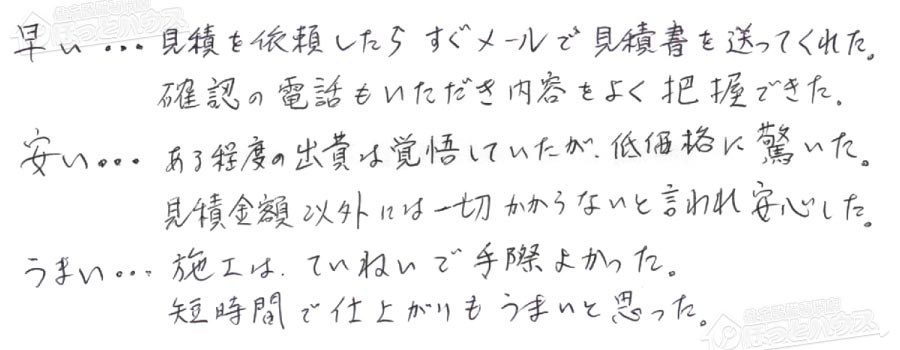 早い・・・見積を依頼したらすぐメールで見積書を送ってくれた。
確認の電話もいただき内容をよく把握できた。
安い・・・ある程度の出費は覚悟していたが、低価格に驚いた。
見積金額以外には一切かからないと言われ安心した。
うまい・・・施工は、ていねいで手際よかった。
短時間で仕上がりもうまいと思った。
ほっとハウス
ほっとハウス